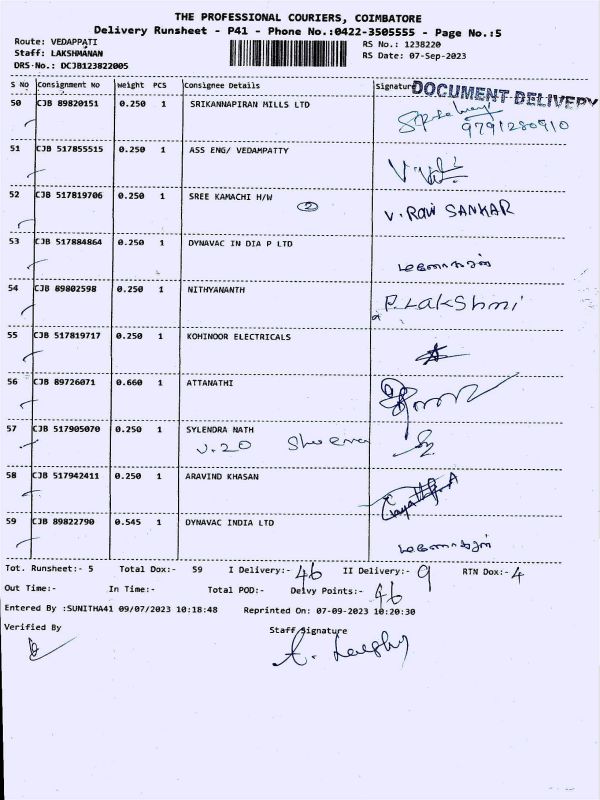 THE PROFESSIONAL COURIERS, COIMBATORE
Delivery Runsheet - P41 - Phone No.:0422-3505555 - Page No.:5
Route: VEDAPPATI
RS No.: 1238220
Staff: LAKSHMANAN
RS Date: 07-Sep-2023
DRS No.: DCJB123822005
S No Consignment No Weight PCS Consignee Details Signature
DOCUMENT DELIVERY
50 CJB 89820151 0.250 1 SRIKANNAPIRAN MILLS LTD
9791280910
51 CJB 517855515 0.250 1 ASS ENG/ VEDAMPATTY
52 CJB 517819706 0.250 1 SREE KAMACHI H/W
2 V. RAVI SANKAR
53 CJB 517884864 0.250 1 DYNAVAC IN DIA P LTD
54 CJB 89802598 0.250 1 NITHYANANTH
P. Lakshmi
55 CJB 517819717 0.250 1 KOHINOOR ELECTRICALS
56 CJB 89726071 0.660 1 ATTANATHI
57 CJB 517905070 0.250 1 SYLENDRA NATH
58 CJB 517942411 0.250 1 ARAVIND KHASAN
59 CJB 89822790 0.545 1 DYNAVAC INDIA LTD
Tot. Runsheet:- 5 Total Dox:- 59 I Delivery:- 46 II Delivery:- 9 RTN Dox:- 4
Out Time:- In Time:- Total POD:- Delvy Points:- 46
Entered By :SUNITHA41 09/07/2023 10:18:48 Reprinted On: 07-09-2023 10:20:30
Verified By Staff Signature